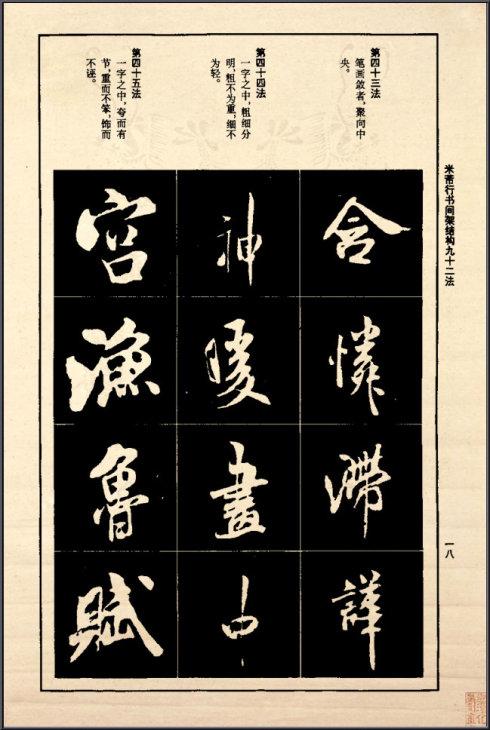 米芾行书间架结构九十二法
一八
第四十三法
笔画敛者，聚向中
央。
第四十四法
一字之中，粗细分
明，粗不为重，细不
为轻。
第四十五法
一字之中，夸而有
节，重而不笨，饰而
不诬。
含
憐
滯
譁
神
暖
畫
中
宮
漁
魯
賦